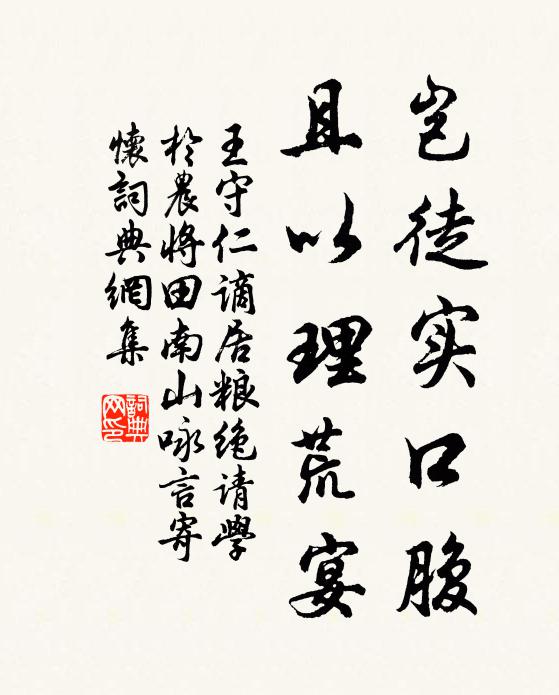 岂徒实口腹
且以理荒宴
王守仁谪居粮绝请学
於農将田南山咏言寄
懷詞典網集
詞典網印